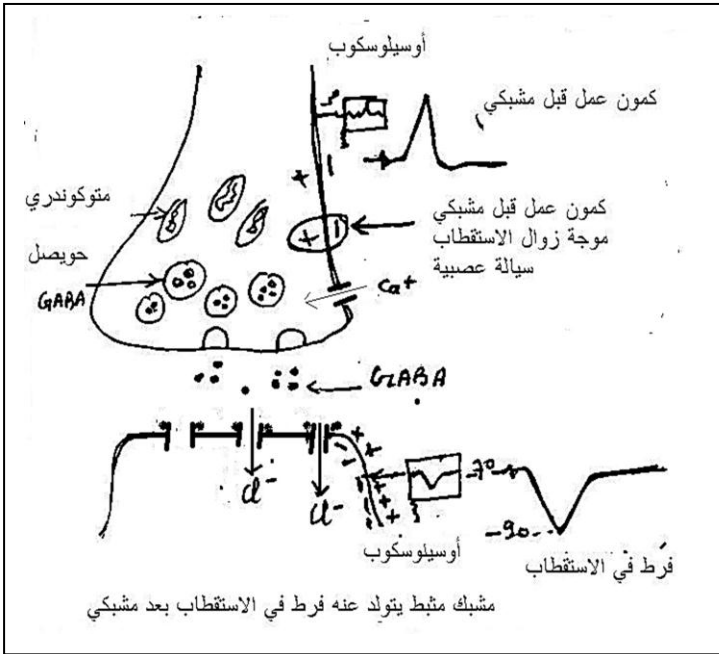 أوسيلوسكوب
كمون عمل قبل مشبكي
متوكوندري
كمون عمل قبل مشبكي
موجة زوال الاستقطاب
سيالة عصبية
حويصل
GABA
Ca+
GABA
Cl-
Cl-
-70
-90
أوسيلوسكوب
فرط في الاستقطاب
مشبك مثبط يتولد عنه فرط في الاستقطاب بعد مشبكي